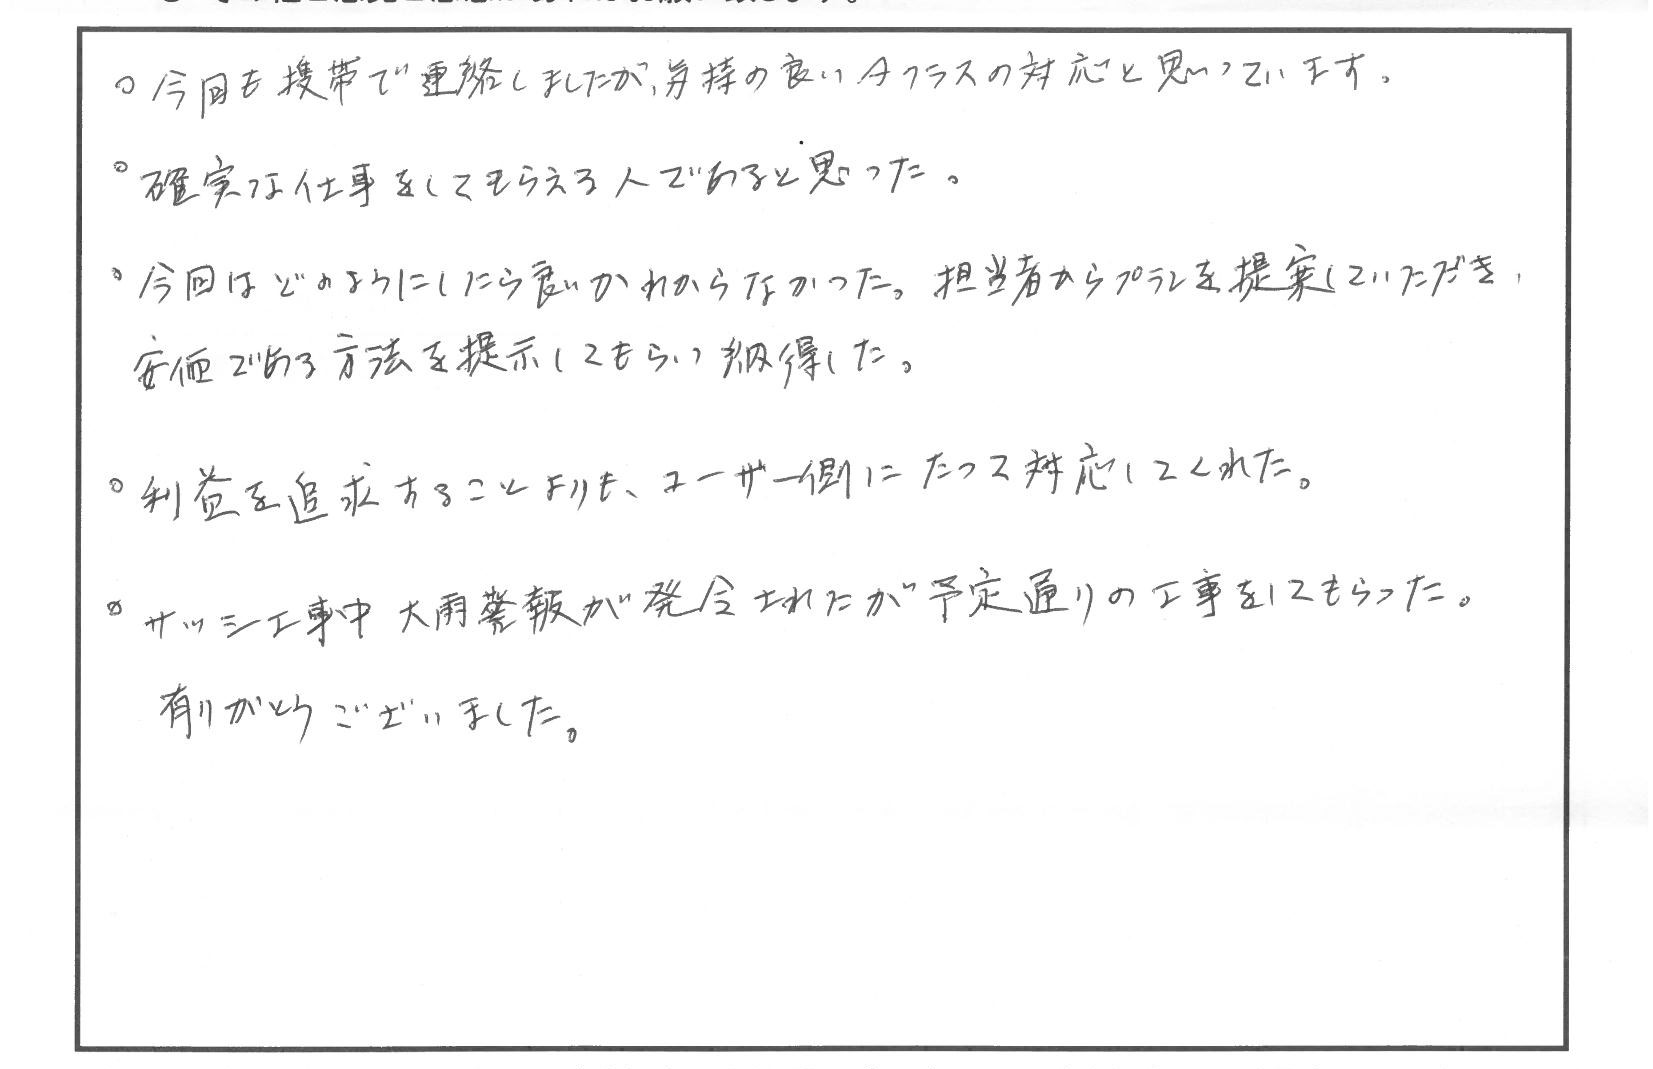 ○ 今回も携帯で連絡しましたが、気持の良いAクラスの対応と思っています。
○ 確実な仕事をしてもらえる人であると思った。
○ 今回はどのようにしたら良いかわからなかった。担当者からプランを提案していただき、
安価である方法を提示してもらい納得した。
○ 利益を追求することよりも、ユーザー側にたって対応してくれた。
○ サッシ工事中大雨警報が発令されたが予定通りの工事をしてもらった。
有りがとうございました。